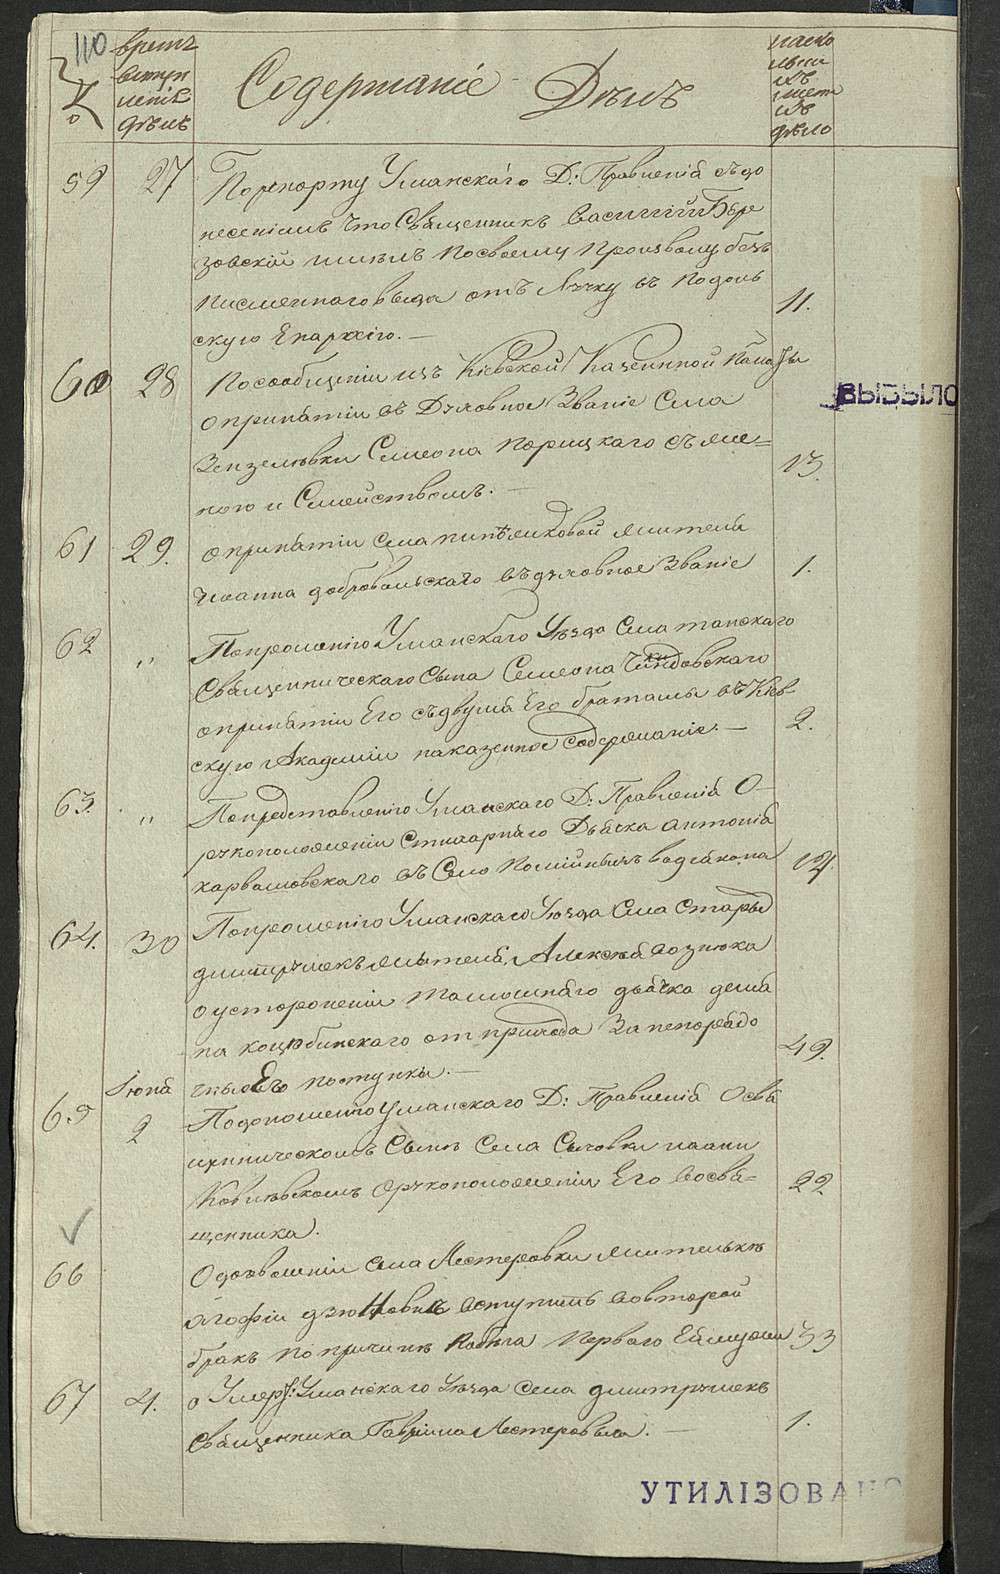 110
№
время
вступ
ленія
дѣлъ
Содержаніе Дѣлъ
на ско
лькихъ
листа
хъ
дѣло
59 27 По репорту Уманскаго Д: Правленія съ до
несеніемъ что Священникъ Василій Бере
зовскій по своему произволу безъ
писменнаго вида отъ лучку въ Подоль
скую Епархію. — 11.
60 28 По сообщеніи изъ Кіевской Казенной Палаты
о принятіи въ Духовное Званіе Села
ВЫБЫЛО
Зензелѣвки Симеона Порицкаго съ же=
ною и Семействомъ. — 13.
61 29. о принятіи села жителя
Іоанна добровольскаго въ духовное Званіе 1.
62 „ По прошенію Уманскаго Уѣзда Села Танскаго
Священническаго Сына Симеона
о принятіи Его съ двумя Его братами въ Кіев
скую Академію на казенное содержаніе. — 2.
63. „ По представленію Уманскаго Д: Правленія О
рукоположеніи Стихарнаго Дьячка Антонія
Карвасовскаго въ Село во діакона 14.
64. 30 По прошенію Уманскаго Уѣзда Села Старыхъ
дмитрушекъ жителя Алексѣя Вознюка
о устороненіи тамошняго дьячка демя
на коцюбинскаго от прихода За непорядо
чные Его поступки. — 49.
Іюня
65 2 По доношенію Уманскаго Д: Правленія О свя
щенническомъ Сынѣ Села іоанн
о рукоположеніи Его во свя=
щенника. 22
66 О дозволеніи села Нестеровки жителькѣ
Агофіи вступить во второй
бракъ по причинѣ побѣга перваго Ея мужа 33
67 4. о Умерш: Уманскаго Уѣзда села дмитрушекъ
священника Гавріила Нестеровскаго. — 1.
УТИЛІЗОВАНО